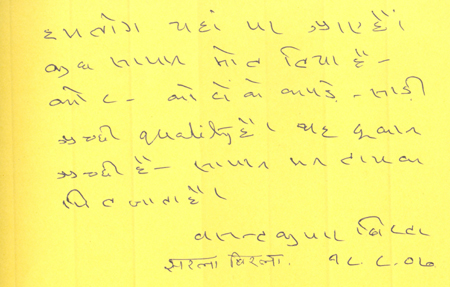 हम लोग यहां पर आए हैं।
कुछ सामान मोल लिया है -
कोट - कोटों के कपड़े - साड़ी
अच्छी quality है। यह दुकान
अच्छी है - सामान पर दाम का
मिल जाता है।
बसन्तकुमार बिरला
सरला बिरला. १८.८.०७